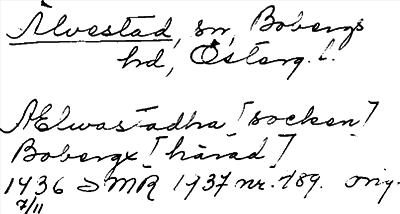 Älvestad, sn, Bobergs
hd, Österg. l.
Ælwastadha [socken]
Bobergx [härad]
1436 SMR 1937 nr. 189. orig.
7/11